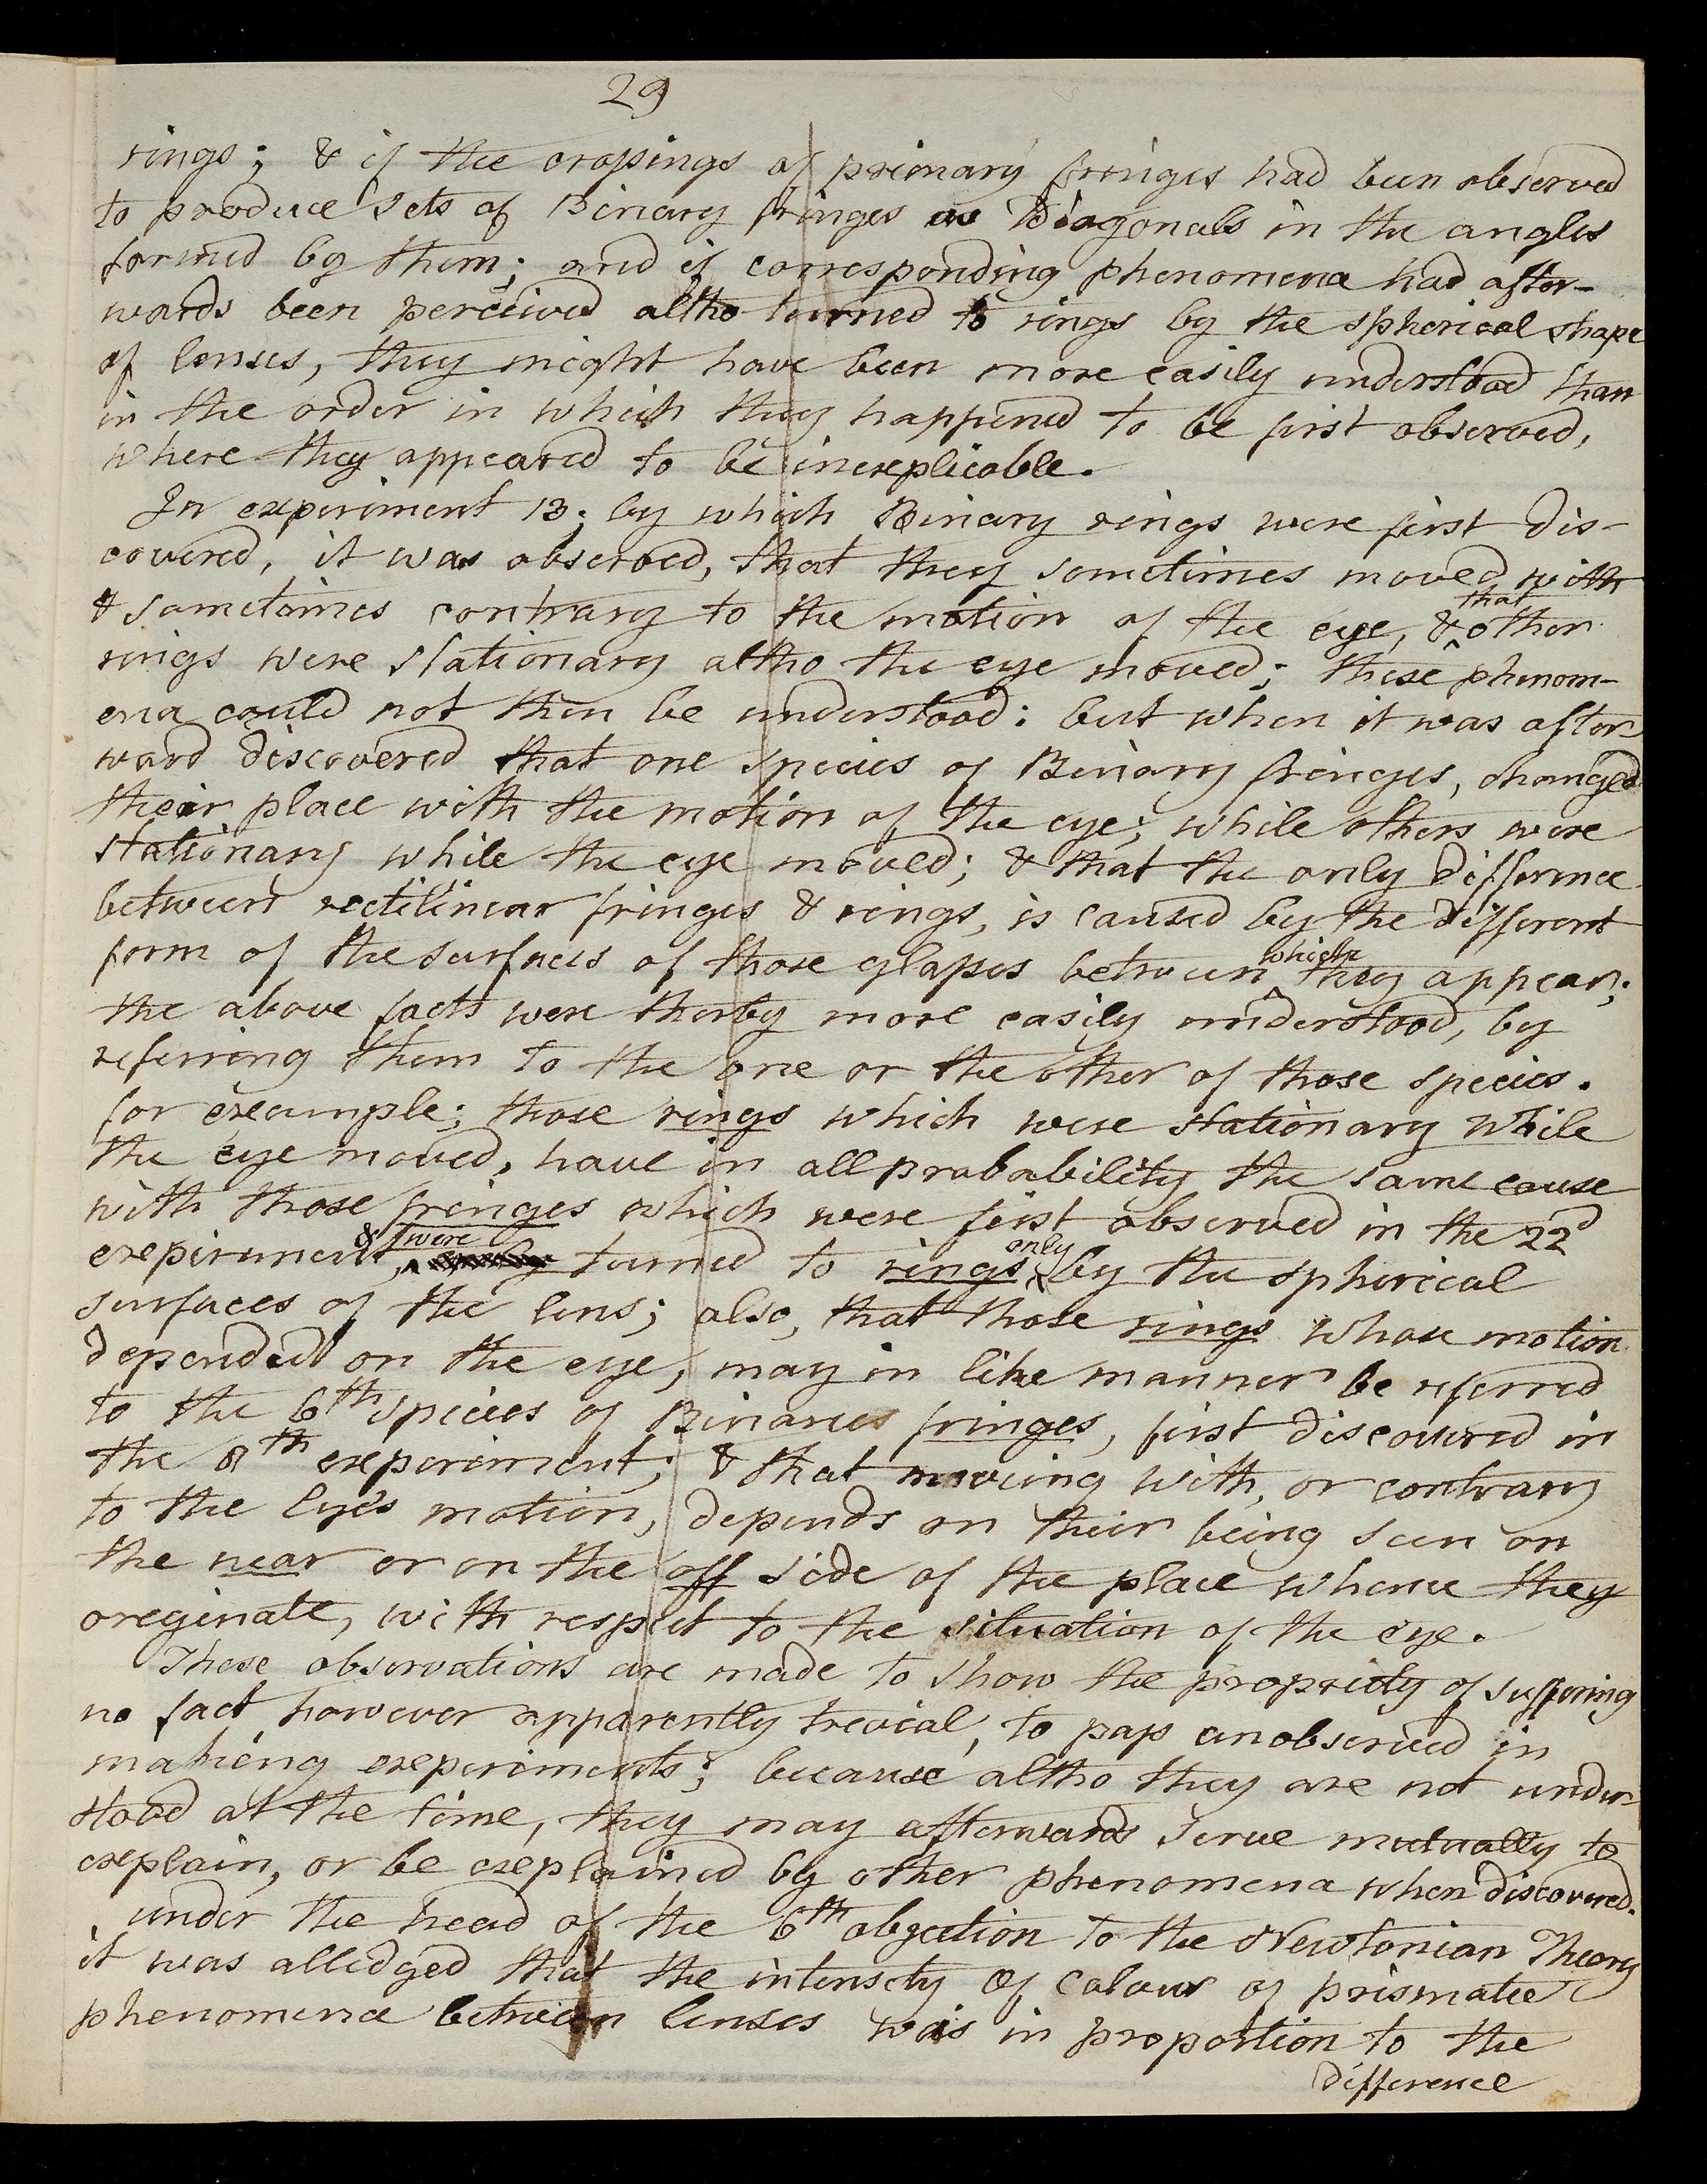 29
rings; & if the crossings of primary fringes had been observed
to produce sets of Binary fringes as Diagonals in the angles
formed by them; and if corresponding phenomena had after-
wards been perceived altho turned to rings by the spherical shape
of lenses, they might have been more easily understood than
in the order in which they happened to be first observed,
where they appeared to be inexplicable.
In experiment 13; by which Binary rings were first dis-
covered, it was observed, that they sometimes moved with
& sometimes contrary to the motion of the eye, & that other
rings were stationary altho the eye moved; these phenom-
ena could not then be understood: but when it was after-
ward discovered that one species of Binary fringes, changed
their place with the motion of the eye; while others were
stationary while the eye moved; & that the only difference
between rectilinear fringes & rings, is caused by the different
form of the surfaces of those glasses between which they appear;
the above facts were therby more easily understood, by
referring them to the one or the other of those species.
for example; those rings which were stationary while
the eye moved, have in all probability the same cause
with those fringes which were first observed in the 22d
experiment, & were turned to rings only by the spherical
surfaces of the lens; also, that those rings whose motion
depended on the eye, may in like manner be referred
to the 6th species of Binaries fringes, first discovered in
the 8th experiment; & that moving with, or contrary
to the Eye's motion, depends on their being seen on
the near or on the off side of the place whence they
oreginate, with respect to the situation of the eye.
These observations are made to show the propriety of suffering
no fact however apparently trevial, to pass unobserved in
making experiments; because altho they are not under-
stood at the time, they may afterwards serve mutually to
explain, or be explained by other phenomena when discovered.
under the head of the 6th objection to the Newtonian Theory
it was alledged that the intensity of colour of prismatic
phenomena between lenses was in proportion to the
difference